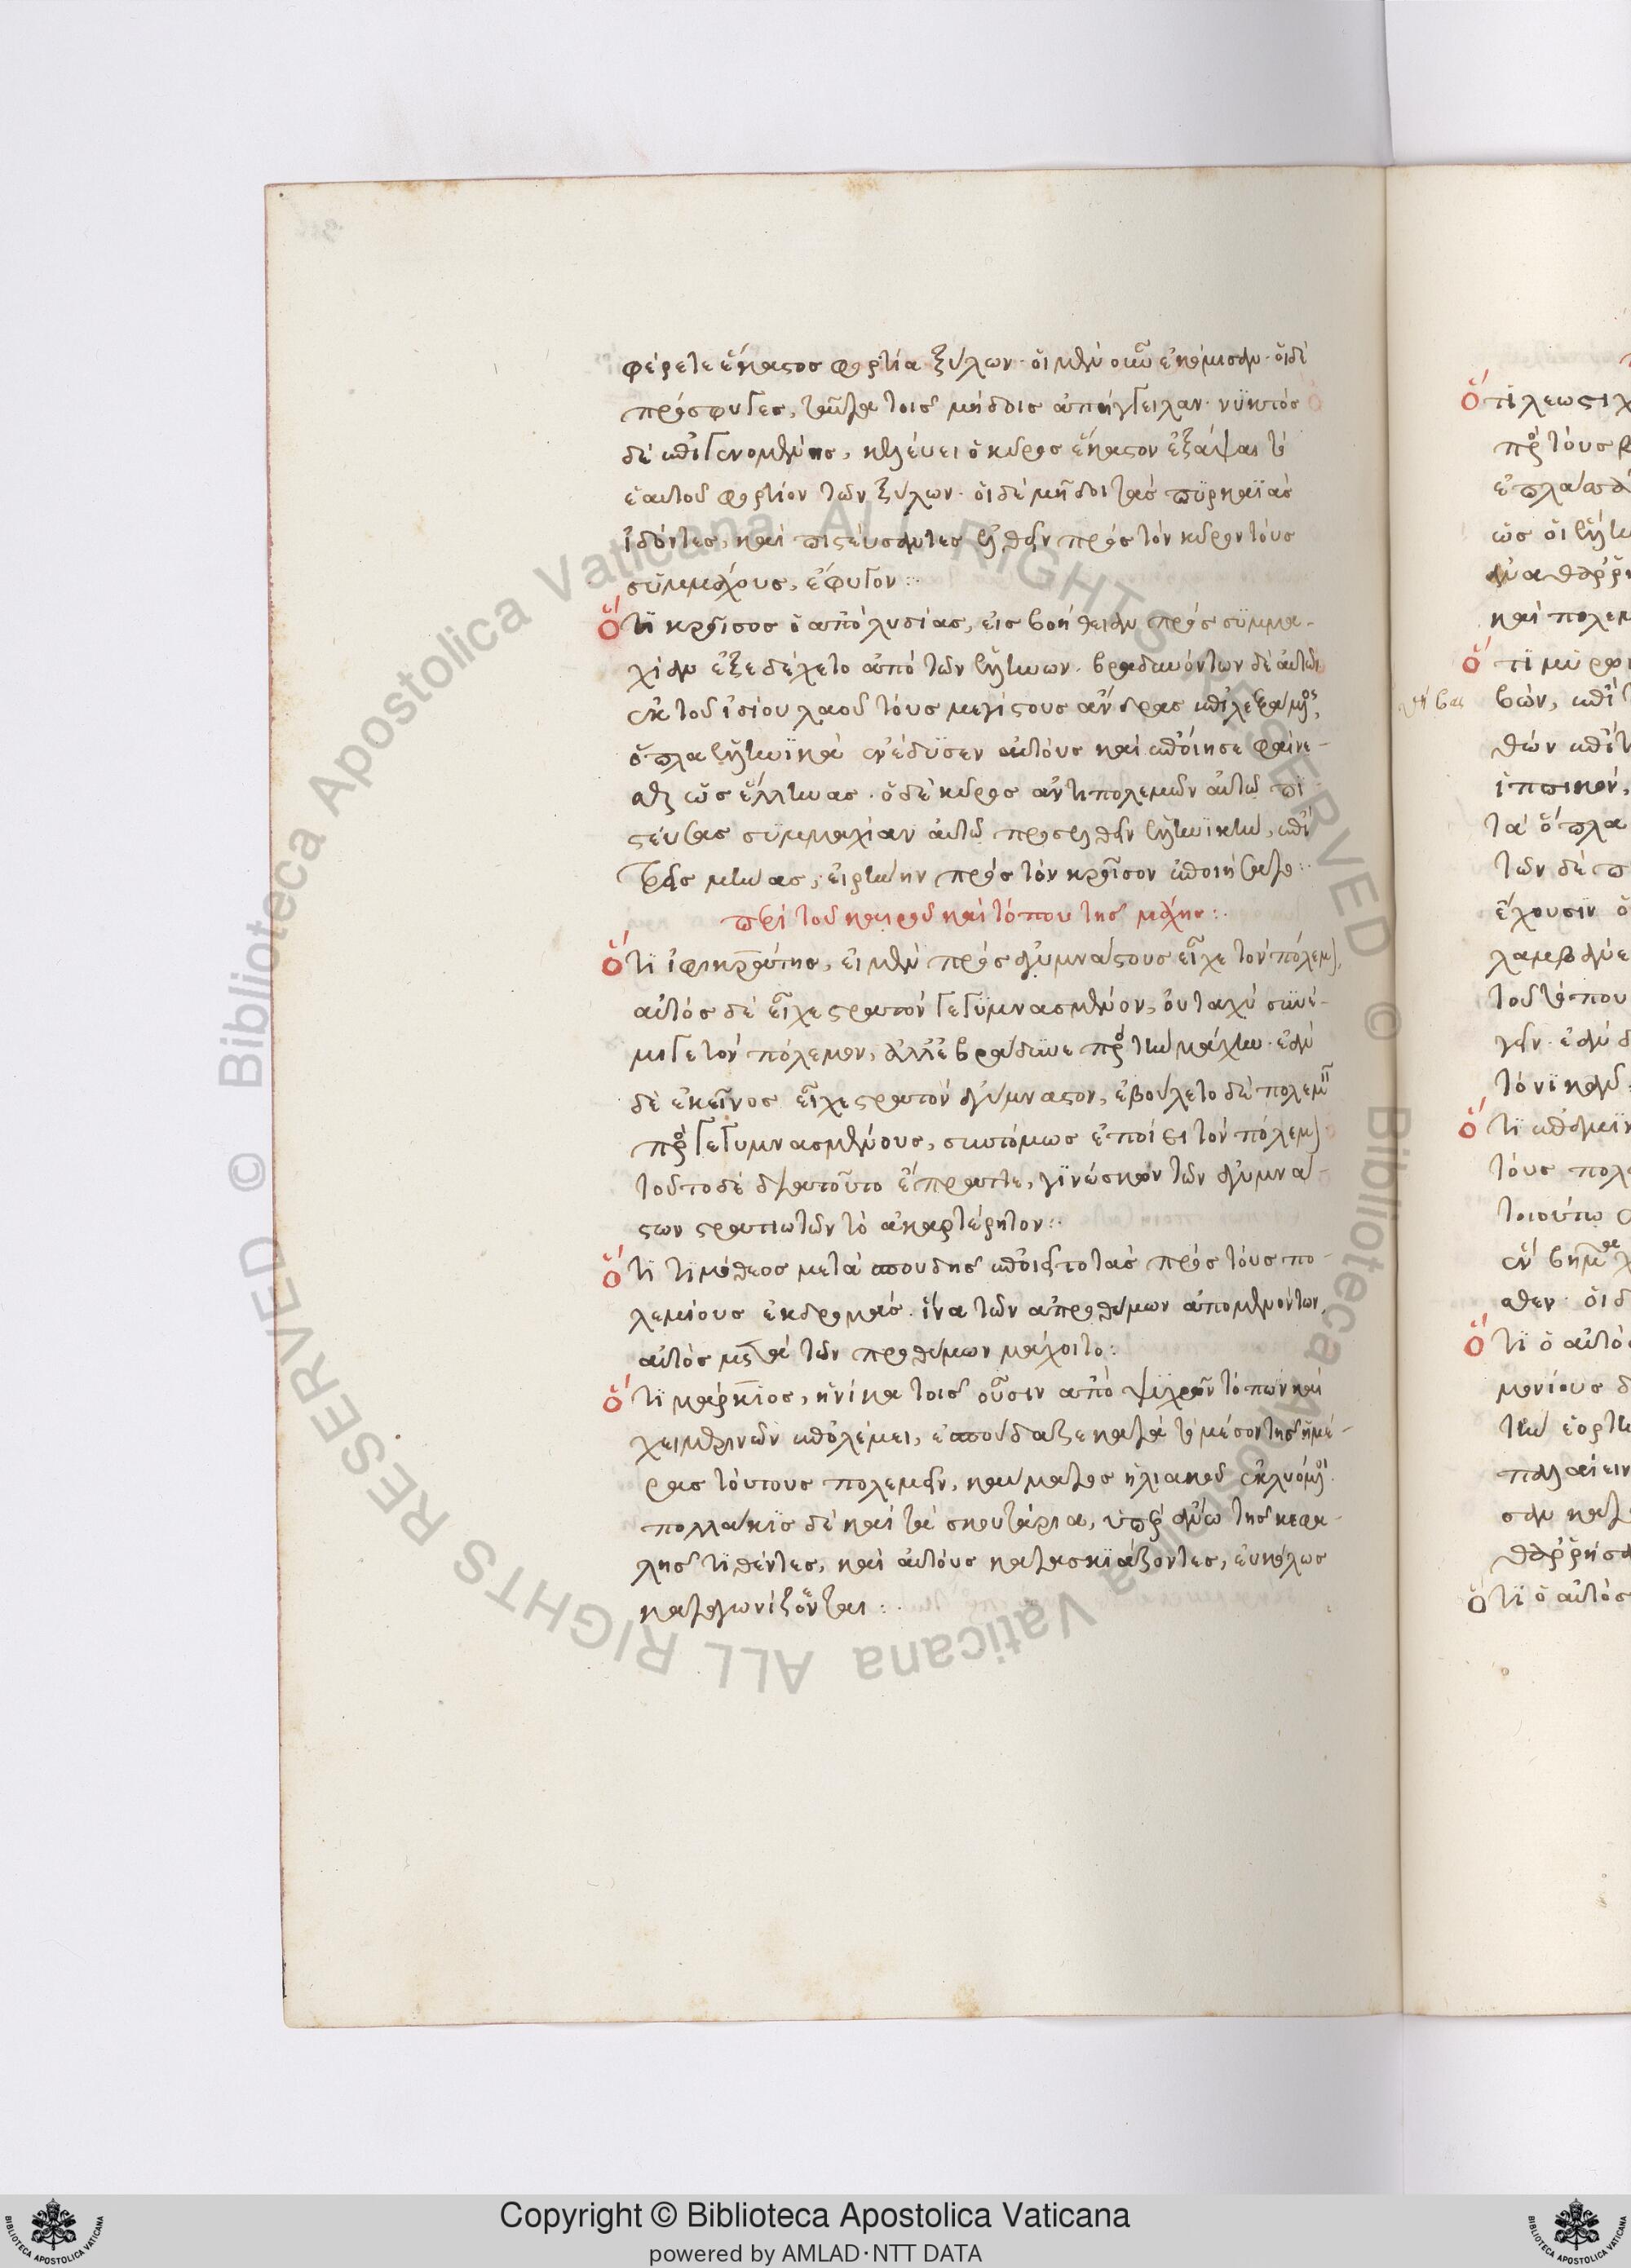 φέρετε ἕκαστος φορτία ξύλων· οἱ μὲν οὖν ἐκόμισαν· οἱ δὲ
πρόσφυγες, ταῦτα τοῖς μήδοις ἀπήγγειλαν· νυκτὸς
δὲ ἐπιγενομένης, κελεύει ὁ κύρος ἕκαστον ἐξάψαι τὸ
ἑαυτοῦ φορτίον τῶν ξύλων· οἱ δὲ μῆδοι τὰς πυρκαϊὰς
ἰδόντες, καὶ πιστεύσαντες ἐλθεῖν πρὸς τὸν κύρον τοὺς
συμμάχους, ἔφυγον:·
ὅτι κροῖσος ὁ ἀπὸ λυσίας, εἰς βοήθειαν πρὸς συμμα-
χίαν ἐξεδέχετο ἀπὸ τῶν ἑλλήνων· βραδυνόντων δὲ αὐτῶν
ἐκ τοῦ ἰσίου λαοῦ τοὺς μεγίστους ἄνδρας ἐπιλεξάμενος,
ὅπλα ἑλληνικὰ ἐνέδυσεν αὐτοὺς καὶ ἐποίησε φαίνε-
σθαι ὡς ἕλληνας· ὁ δὲ κύρος ἀντιπολεμῶν αὐτῷ πι-
στεύσας συμμαχίαν αὐτῷ προσελθεῖν ἑλληνικὴν, ἐπὶ
τρεῖς μῆνας, εἰρήνην πρὸς τὸν κροῖσον ἐποιήσατο:·
περὶ τοῦ καιροῦ καὶ τόπου τῆς μάχης:·
ὅτι ἰφικράτης, εἰ μὲν πρὸς ἀγυμνάστους εἶχε τὸν πόλεμον,
αὐτὸς δὲ εἶχε στρατὸν γεγυμνασμένον, οὐ ταχὺ συνέ-
μιγε τὸν πόλεμον, ἀλλ' ἐβράδυνε πρὸς τὴν μάχην· ἐὰν
δὲ ἐκεῖνος εἶχε στρατὸν ἀγύμναστον, ἐβούλετο δὲ πολεμεῖν
πρὸς γεγυμνασμένους, συντόμως ἐποίει τὸν πόλεμον
τοῦτο δὲ διὰ τοῦτο ἔπραττε, γινώσκων τῶν ἀγυμνά-
στων στρατιωτῶν τὸ ἀκαρτέρητον:·
ὅτι τιμόθεος μετὰ σπουδῆς ἐποιεῖτο τὰς πρὸς τοὺς πο-
λεμίους ἐκδρομάς· ἵνα τῶν ἀπροθύμων ἀπομενόντων,
αὐτὸς μετὰ τῶν προθύμων μάχοιτο:·
ὅτι μάρκιος, ἡνίκα τοῖς οὖσιν ἀπὸ ψυχρῶν τόπων καὶ
χειμερινῶν ἐπολέμει, ἐσπούδαζε κατὰ τὸ μέσον τῆς ἡμέ-
ρας τούτους πολεμεῖν, καύματος ἡλιακοῦ ἐκλυόμενοι·
πολλάκις δὲ καὶ τὰ σκουτάρια, ὑπὲρ ἄνω τῆς κεφα-
λῆς τιθέντες, καὶ αὐτοὺς κατασκιάζοντες, εὐκόλως
καταγωνίζονται:·
Copyright © Biblioteca Apostolica Vaticana
powered by AMLAD·NTT DATA